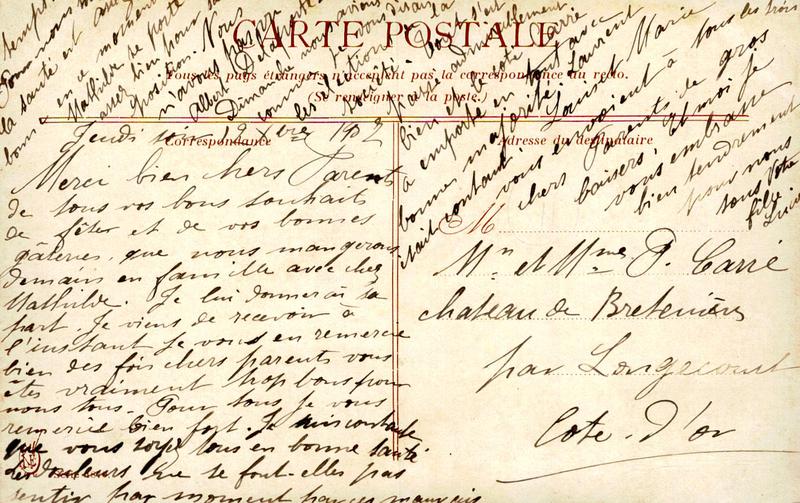 CARTE POSTALE
Tous les pays étrangers n'acceptent pas la correspondance au recto.
(Se renseigner à la poste.)
Correspondance
Adresse du destinataire
Jeudi soir 12 Xbre 1912
Merci bien chers Parents
de tous vos bons souhaits
de fêter et de vos bonnes
gâteries, que nous mangerons
demain en famille avec chez
Mathilde. Je lui donnerai sa
part. Je viens de recevoir à
l'instant je vous en remercie
bien des fois chers parents vous
êtes vraiment trop bons pour
nous tous. Pour tous je vous
remercie bien fort. Je suis contente
que vous soyez tous en bonne santé
les douleurs que se font elles pas
sentir par moment par ces mauvais
temps
la santé est
bons
en ce moment
Mathilde se porte
assez bien pour sa
position. Nous
n'avons pas
Albert
Dimanche nous
comme je vous disais la
les élections
bien et notre Carré
a emporté en tout avec
bonne majorité, Laurent
était content. Louise Marie
vous envoient à tous les trois
chers Parents de gros
baisers, Et moi je
vous embrasse
bien tendrement
pour nous
tous Votre
fille
M
Mr et Mme P. Carré
chateau de Bretenières
par Longecourt
Cote-d'or